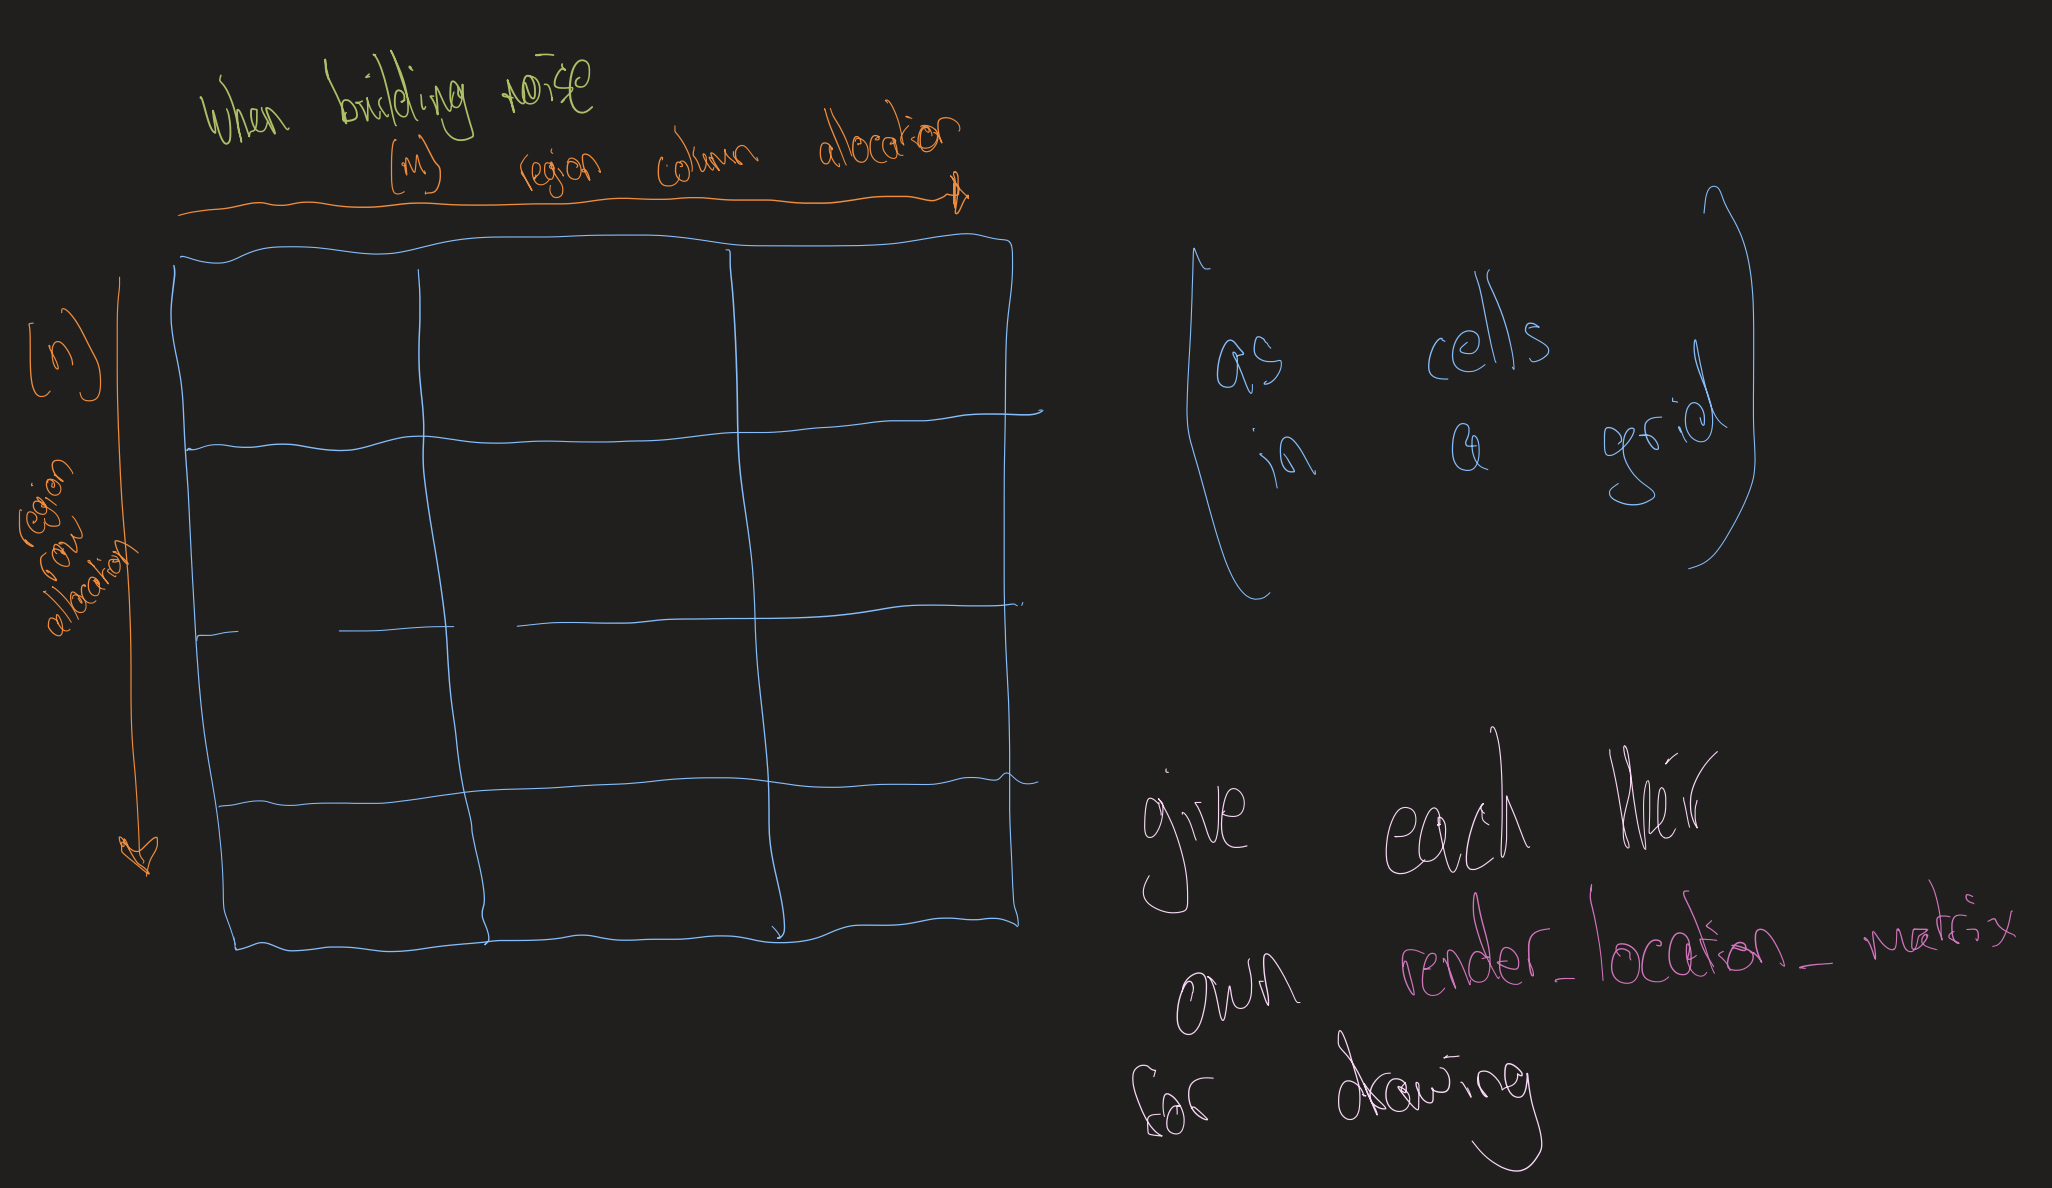 when building noise
[m] region column allocation
[n]
region
row
allocation
as cells
in a grid
give each their
own render_location_matrix
for drawing